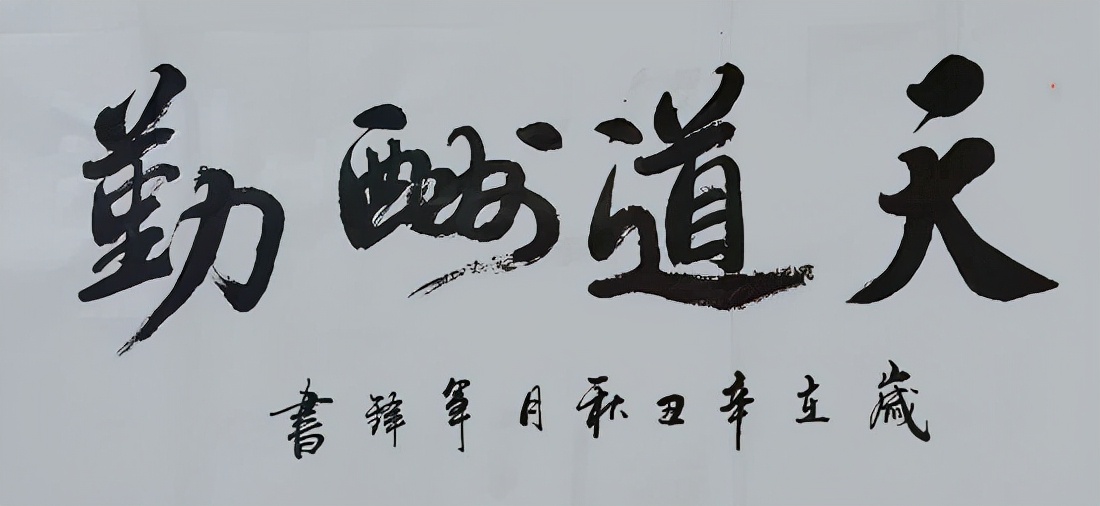 天道酬勤
歲在辛丑秋月軍鋒書